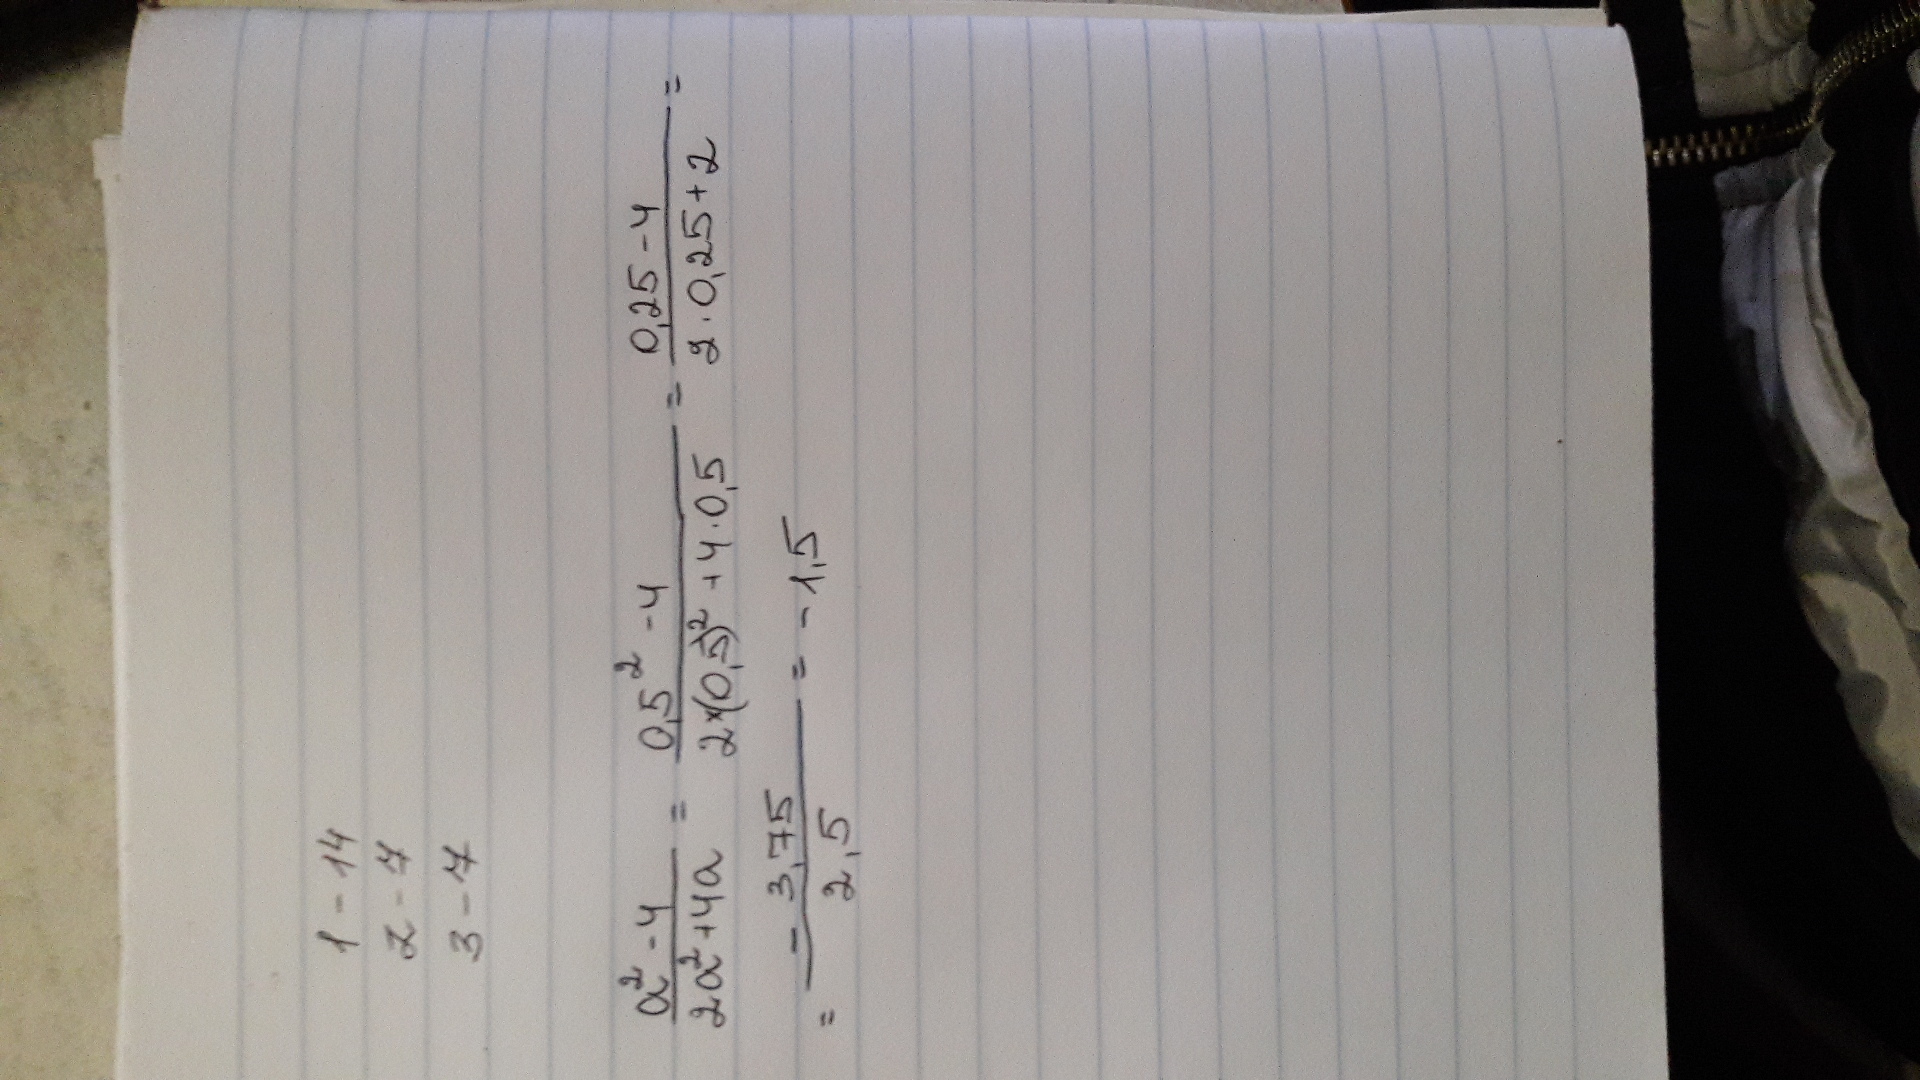 1 - 14
2 - 7
3 - 7
a² - 4 / 2a² + 4a = 0,5² - 4 / 2×(0,5)² + 4 · 0,5 = 0,25 - 4 / 2 · 0,25 + 2 =
= - 3,75 / 2,5 = - 1,5